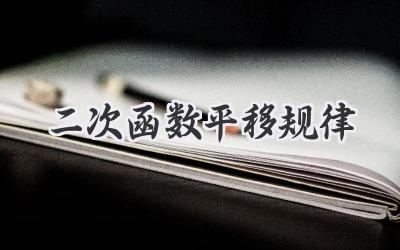 二次函数平移规律